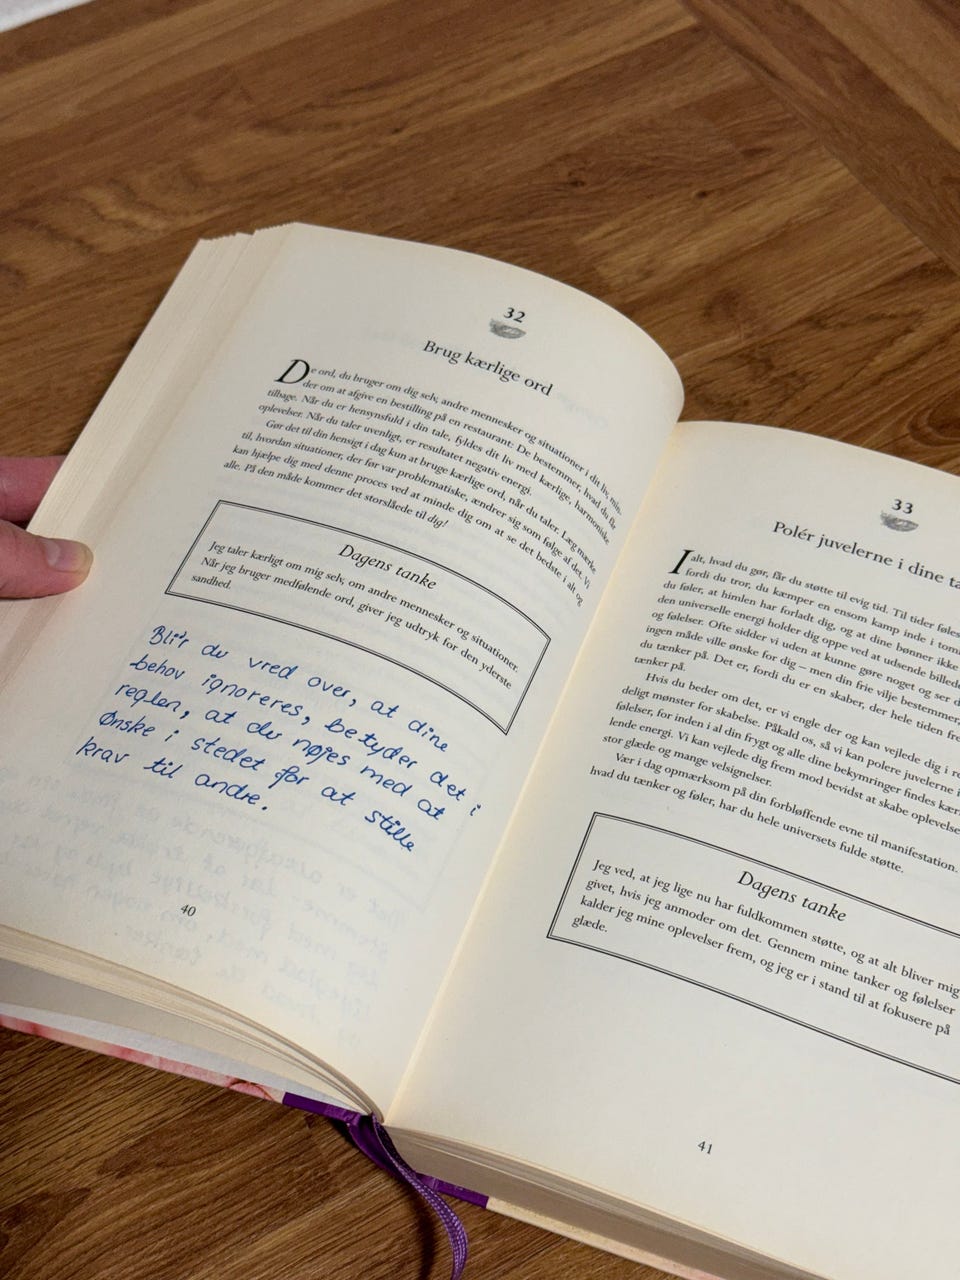 32
Brug kærlige ord
De ord, du bruger om dig selv, andre mennesker og situationer i dit liv, min-
der om at afgive en bestilling på en restaurant: De bestemmer, hvad du får
tilbage. Når du er hensynsfuld i din tale, fyldes dit liv med kærlige, harmoniske
oplevelser. Når du taler uvenligt, er resultatet negativ energi.
Gør det til din hensigt i dag kun at bruge kærlige ord, når du taler. Læg mærke
til, hvordan situationer, der før var problematiske, ændrer sig som følge af det. Vi
kan hjælpe dig med denne proces ved at minde dig om at se det bedste i alt og
alle. På den måde kommer det storslåede til dig!
Dagens tanke
Jeg taler kærligt om mig selv, om andre mennesker og situationer.
Når jeg bruger medfølende ord, giver jeg udtryk for den yderste
sandhed.
Blir du vred over, at dine
behov ignoreres, betyder det i
reglen, at du nøjes med at
Ønske i stedet før at stille
krav til andre.
40
33
Polér juvelerne i dine ta
I alt, hvad du gør, får du støtte til evig tid. Til tider føles
fordi du tror, du kæmper en ensom kamp inde i tom
du føler, at himlen har forladt dig, og at dine bønner ikke
den universelle energi holder dig oppe ved at udsende billede
og følelser. Ofte sidder vi uden at kunne gøre noget og ser d
ingen måde ville ønske for dig – men din frie vilje bestemmer,
du tænker på. Det er, fordi du er en skaber, der hele tiden fre
tænker på.
Hvis du beder om det, er vi engle der og kan vejlede dig i re
deligt mønster for skabelse. Påkald os, så vi kan polere juvelerne i
følelser, for inden i al din frygt og alle dine bekymringer findes kær
lende energi. Vi kan vejlede dig frem mod bevidst at skabe oplevelse
stor glæde og mange velsignelser.
Vær i dag opmærksom på din forbløffende evne til manifestation.
hvad du tænker og føler, har du hele universets fulde støtte.
Dagens tanke
Jeg ved, at jeg lige nu har fuldkommen støtte, og at alt bliver mig
givet, hvis jeg anmoder om det. Gennem mine tanker og følelser
kalder jeg mine oplevelser frem, og jeg er i stand til at fokusere på
glæde.
41